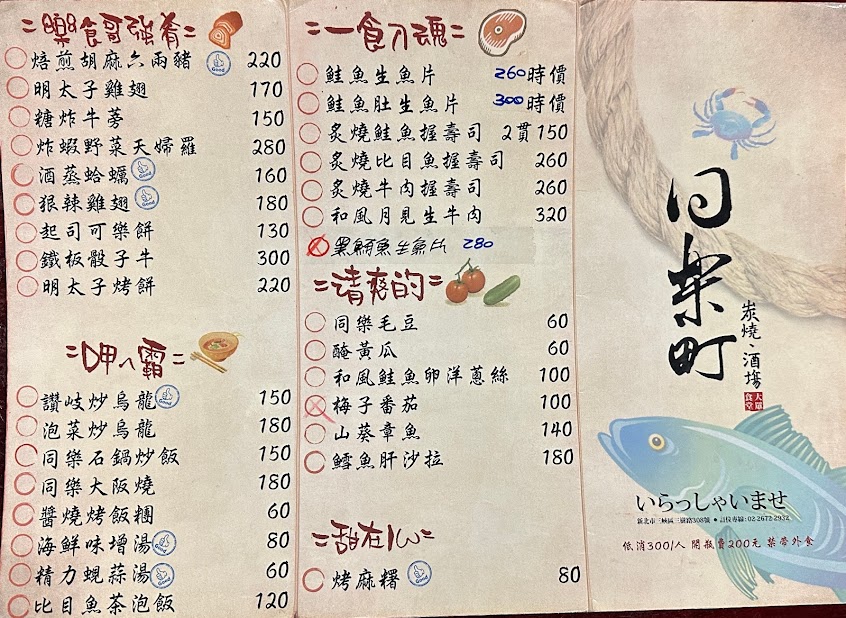 樂食哥強肴
焙煎胡麻六兩豬 Good 220
明太子雞翅 170
糖炸牛蒡 150
炸蝦野菜天婦羅 280
酒蒸蛤蠣 Good 160
狠辣雞翅 Good 180
起司可樂餅 130
鐵板骰子牛 300
明太子烤餅 220
呷ㄟ霸
讚岐炒烏龍 Good 150
泡菜炒烏龍 180
同樂石鍋炒飯 150
同樂大阪燒 180
醬燒烤飯糰 60
海鮮味增湯 Good 80
精力蜆蒜湯 Good 60
比目魚茶泡飯 120
一食刀魂
鮭魚生魚片 260時價
鮭魚肚生魚片 300時價
炙燒鮭魚握壽司 2貫150
炙燒比目魚握壽司 260
炙燒牛肉握壽司 260
和風月見生牛肉 320
黑鮪魚生魚片 280
清爽的
同樂毛豆 60
醃黃瓜 60
和風鮭魚卵洋蔥絲 100
梅子番茄 100
山葵章魚 140
鱈魚肝沙拉 180
甜在心
烤麻糬 Good 80
同樂町
炭燒、酒場
大眾食堂
いらっしゃいませ
新北市三峽區三樹路308號 ● 訂位專線:02-2672-2932
低消300/人 開瓶費200元 禁帶外食